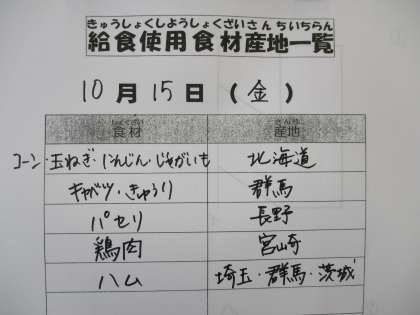 きゅうしょくしようしょくざいさんちいちらん
給食使用食材産地一覧
10月15日(金)
しょくざい さんち
食材 産地
コーン・玉ねぎ・にんじん・じゃがいも 北海道
キャベツ・きゅうり 群馬
パセリ 長野
鶏肉 宮崎
ハム 埼玉・群馬・茨城